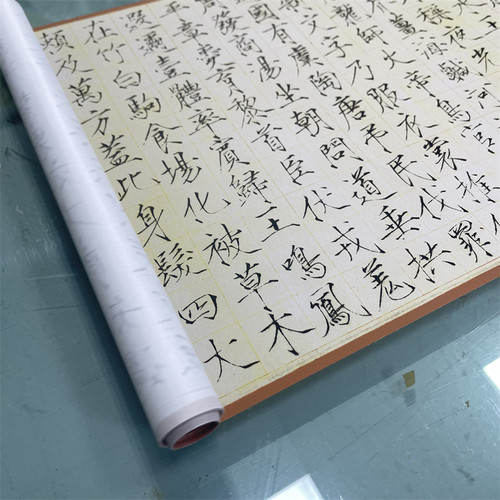 鹹河
龍師火帝鳥官
文字乃服衣裳推
國有虞陶唐弔民伐罪
發商湯坐朝問道垂拱
章愛育黎首臣伏戎羌
遐邇壹體率賓歸王鳴鳳
在竹白駒食場化被草木
賴及萬方蓋此身髮四大